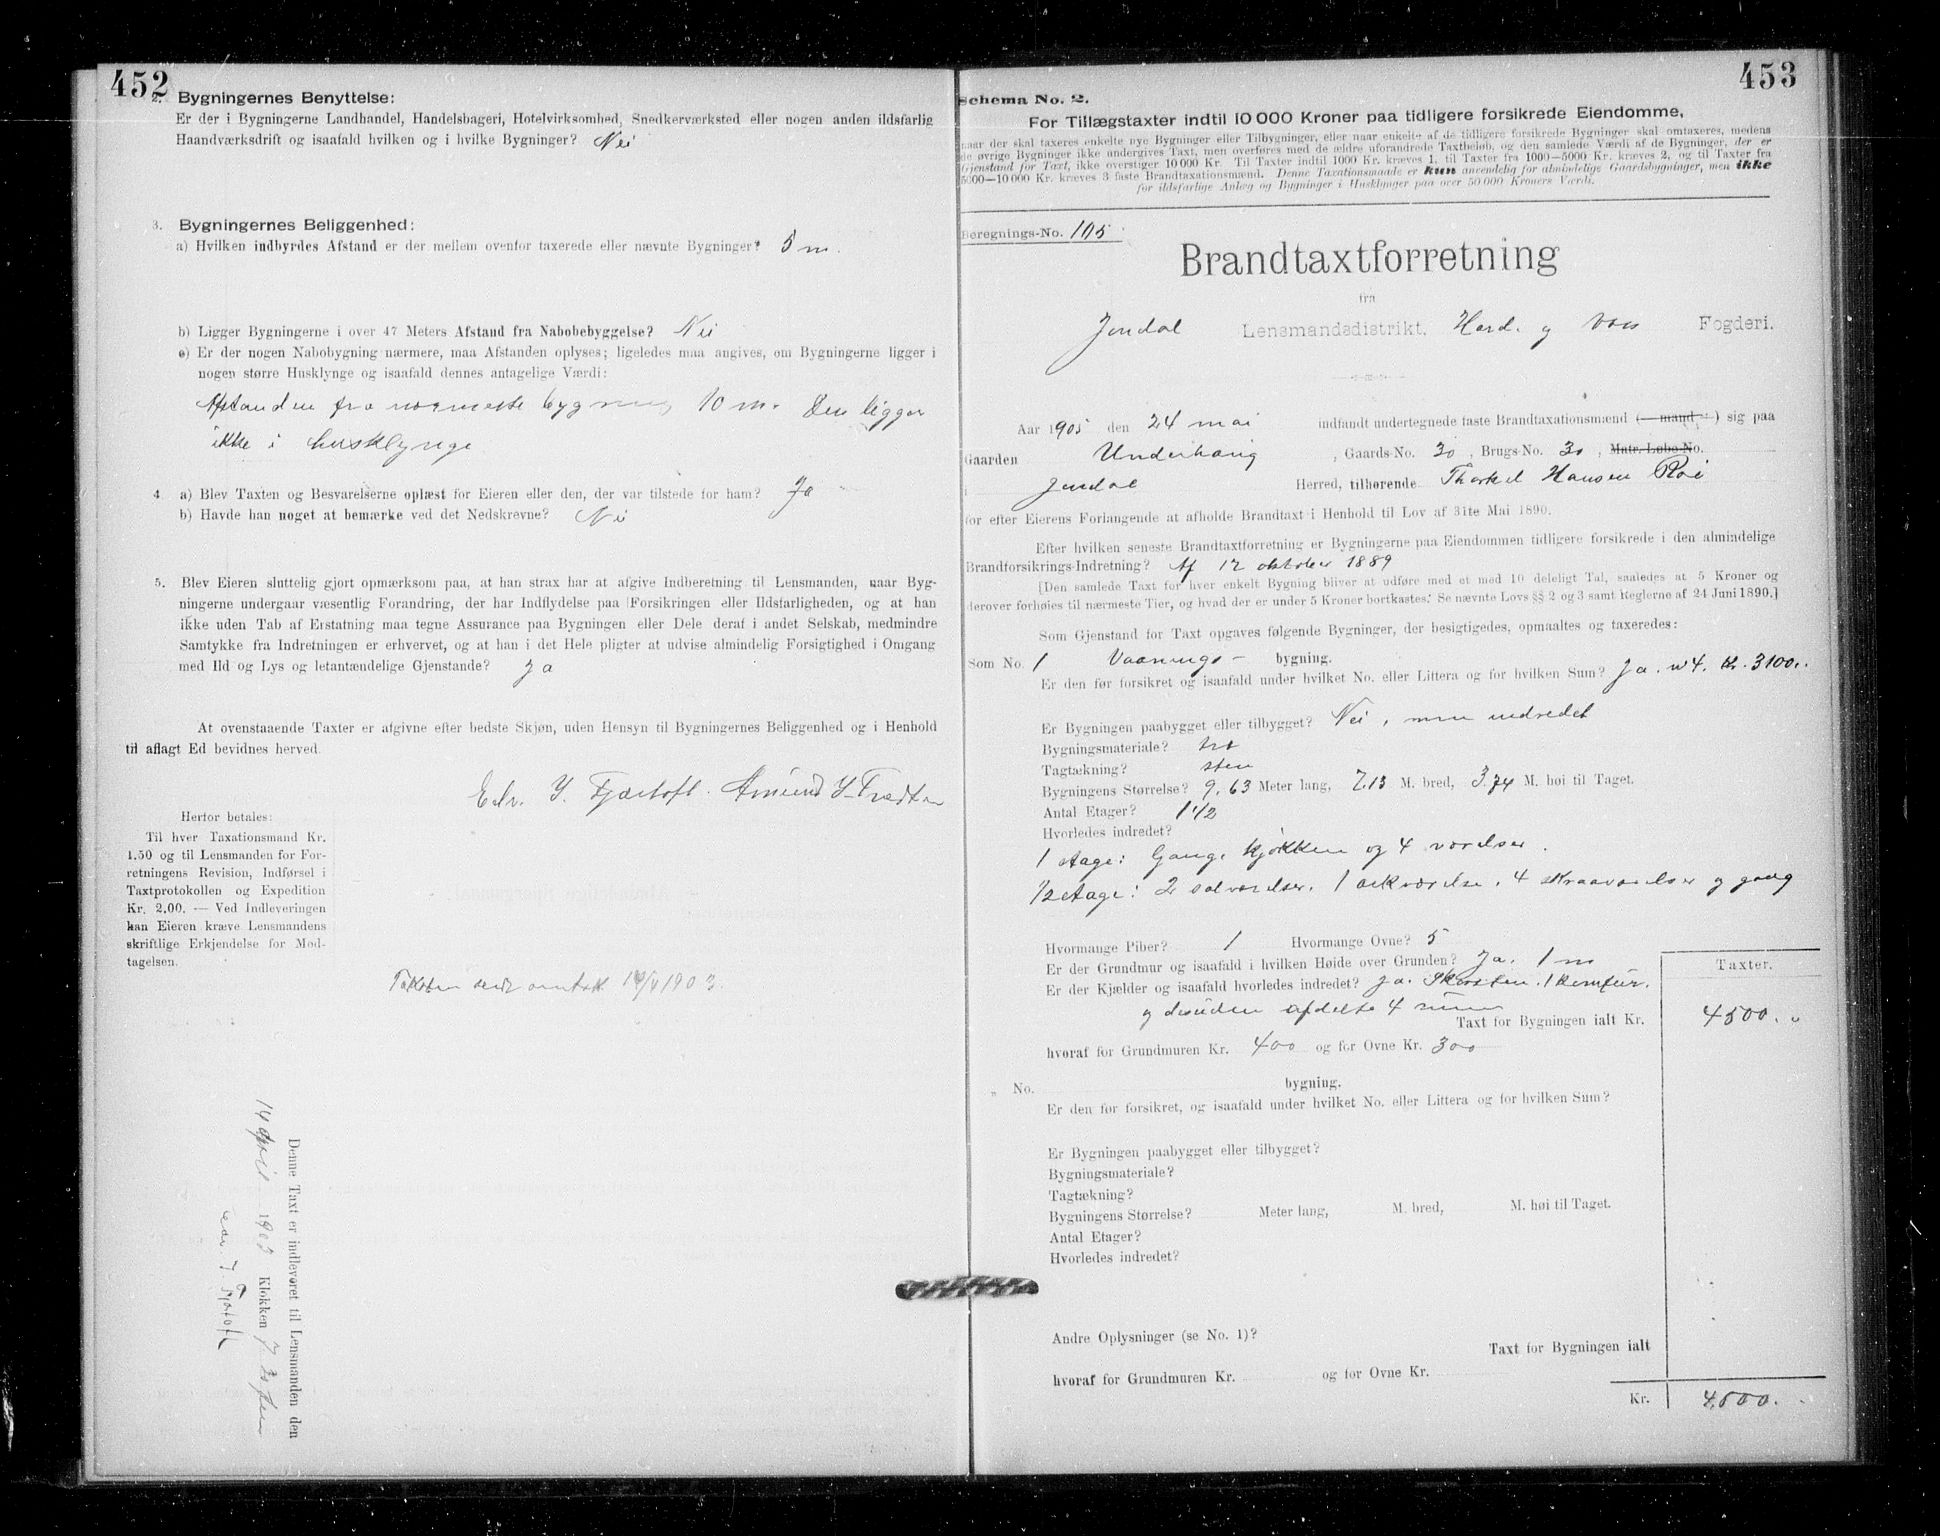 452
2. Bygningernes Benyttelse:
Er der i Bygningerne Landhandel, Handelsbageri, Hotelvirksomhed, Snedkerværksted eller nogen anden ildsfarlig
Haandværksdrift og isaafald hvilken og i hvilke Bygninger? Nei
3. Bygningernes Beliggenhed:
a) Hvilken indbyrdes Afstand er der mellem ovenfor taxerede eller nævnte Bygninger? 5 m.
b) Ligger Bygningerne i over 47 Meters Afstand fra Nabobebyggelse? Nei
c) Er der nogen Nabobygning nærmere, maa Afstanden oplyses; ligeledes maa angives, om Bygningerne ligger i
nogen større Husklynge og isaafald dennes antagelige Værdi:
Afstanden fra nærmeste bygning 10 m. Den ligger
ikke i husklynge
4. a) Blev Taxten og Besvarelserne oplæst for Eieren eller den, der var tilstede for ham? Ja
b) Havde han noget at bemærke ved det Nedskrevne? Nei
5. Blev Eieren sluttelig gjort opmærksom paa, at han strax har at afgive Indberetning til Lensmanden, naar Byg-
ningerne undergaar væsentlig Forandring, der har Indflydelse paa Forsikringen eller Ildsfarligheden, og at han
ikke uden Tab af Erstatning maa tegne Assurance paa Bygningen eller Dele deraf i andet Selskab, medmindre
Samtykke fra Indretningen er erhvervet, og at han i det Hele pligter at udvise almindelig Forsigtighed i Omgang
med Ild og Lys og letantændelige Gjenstande? Ja
At ovenstaaende Taxter er afgivne efter bedste Skjøn, uden Hensyn til Bygningernes Beliggenhed og i Henhold
til aflagt Ed bevidnes herved.
Edv. J. Fjærtoft. Amund
Herfor betales:
Til hver Taxationsmand Kr.
1.50 og til Lensmanden for For-
retningens Revision, Indførsel i
Taxtprotokollen og Expedition
Kr. 2.00. — Ved Indleveringen
kan Eieren kræve Lensmandens
skriftlige Erkjendelse for Mod-
tagelsen.
1903.
Denne Taxt er indleveret til Lensmanden den
14 april 1903 Klokken 7
Edv. J. Fjærtoft
453
Schema No. 2.
For Tillægstaxter indtil 10 000 Kroner paa tidligere forsikrede Eiendomme,
naar der skal taxeres enkelte nye Bygninger eller Tilbygninger, eller naar enkelte af de tidligere forsikrede Bygninger skal omtaxeres, medens
de øvrige Bygninger ikke undergives Taxt, men overføres med de ældre uforandrede Taxtbeløb, og den samlede Værdi af de Bygninger, der er
Gjenstand for Taxt, ikke overstiger 10 000 Kr. Til Taxter indtil 1000 Kr. kræves 1, til Taxter fra 1000—5000 Kr. kræves 2, og til Taxter fra
5000—10 000 Kr. kræves 3 faste Brandtaxationsmænd. Denne Taxationsmaade er kun anvendelig for almindelige Gaardsbygninger, men ikke
for ildsfarlige Anlæg og Bygninger i Husklynger paa over 50 000 Kroners Værdi.
Beregnings-No. 105
Brandtaxtforretning
fra
Jondal Lensmandsdistrikt, Hard. og Voss Fogderi.
Aar 1905 den 24 mai indfandt undertegnede faste Brandtaxationsmænd (— mand —) sig paa
Gaarden Underhaug, Gaards-No. 30, Brugs-No. 30, Matr. Løbe-No.
i Jondal Herred, tilhørende Thorkel Hansen
for efter Eierens Forlangende at afholde Brandtaxt i Henhold til Lov af 31te Mai 1890.
Efter hvilken seneste Brandtaxtforretning er Bygningerne paa Eiendommen tidligere forsikrede i den almindelige
Brandforsikrings-Indretning? Af 12 oktober 1889
[Den samlede Taxt for hver enkelt Bygning bliver at udføre med et med 10 deleligt Tal, saaledes at 5 Kroner og
derover forhøies til nærmeste Tier, og hvad der er under 5 Kroner bortkastes. Se nævnte Lovs §§ 2 og 3 samt Reglerne af 24 Juni 1890.]
Som Gjenstand for Taxt opgaves følgende Bygninger, der besigtigedes, opmaaltes og taxeredes:
Som No. 1 Vaanings- bygning.
Er den før forsikret og isaafald under hvilket No. eller Littera og for hvilken Sum? Ja. № 4. Kr. 3100.
Er Bygningen paabygget eller tilbygget? Nei, men indredet
Bygningsmateriale? træ
Tagtækning? sten
Bygningens Størrelse? 9,63 Meter lang, 7,13 M. bred, 3,74 M. høi til Taget.
Antal Etager? 1 1/2
Hvorledes indredet?
1 etage: Gang, kjøkken og 4 værelser.
1/2 etage: 2 salværelser, 1 arkværelse, 4 skraaværelser og gang
Hvormange Piber? 1 Hvormange Ovne? 5
Er der Grundmur og isaafald i hvilken Høide over Grunden? Ja. 1 m
Er der Kjælder og isaafald hvorledes indredet? Ja. Skorsten. 1 komfur.
og desuden afdelte 4 rum
Taxter.
Taxt for Bygningen ialt Kr. 4500. "
hvoraf for Grundmuren Kr. 400 og for Ovne Kr. 300
„ No. bygning.
Er den før forsikret, og isaafald under hvilket No. eller Littera og for hvilken Sum?
Er Bygningen paabygget eller tilbygget?
Bygningsmateriale?
Tagtækning?
Bygningens Størrelse? Meter lang, M. bred, M. høi til Taget.
Antal Etager?
Hvorledes indredet?
Andre Oplysninger (se No. 1)?
Taxt for Bygningen ialt
hvoraf for Grundmuren Kr. og for Ovne Kr.
Kr. 4,500.